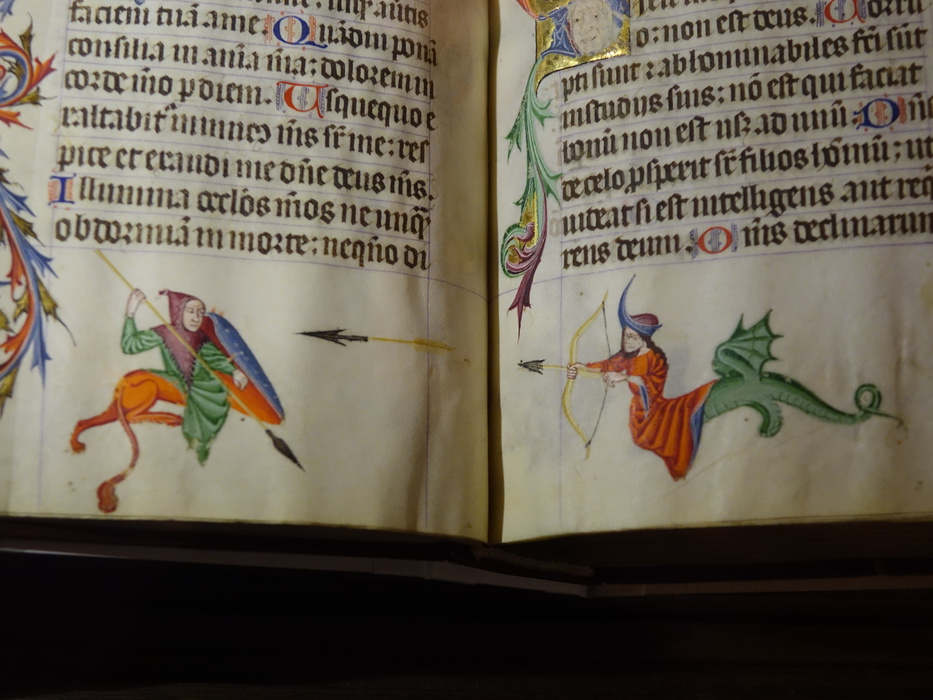 faciem tuã a me. Quãdiu ponã
consilia in aĩa mea: dolorem in
corde mẽo p diem. Usquequo e
xaltabit̃ inimic9 mẽs sr̃ me: res
pice et exaudi me dñe deus mẽs.
Illumina oc̃los mẽos ne unq̃
obdormiã in morte: neqñdo di
o: non est deus. Corru
pti sunt ⁊ abhominabiles fc̃i sũt
in studijs suis: nõ est qui faciat
bonũ non est usq ad unũ. Dñs
de celo p̃sperit sr̃ filios hom̃inũ: ut
uideat si est intelligens aut req
rens deum. Om̃s declinarunt